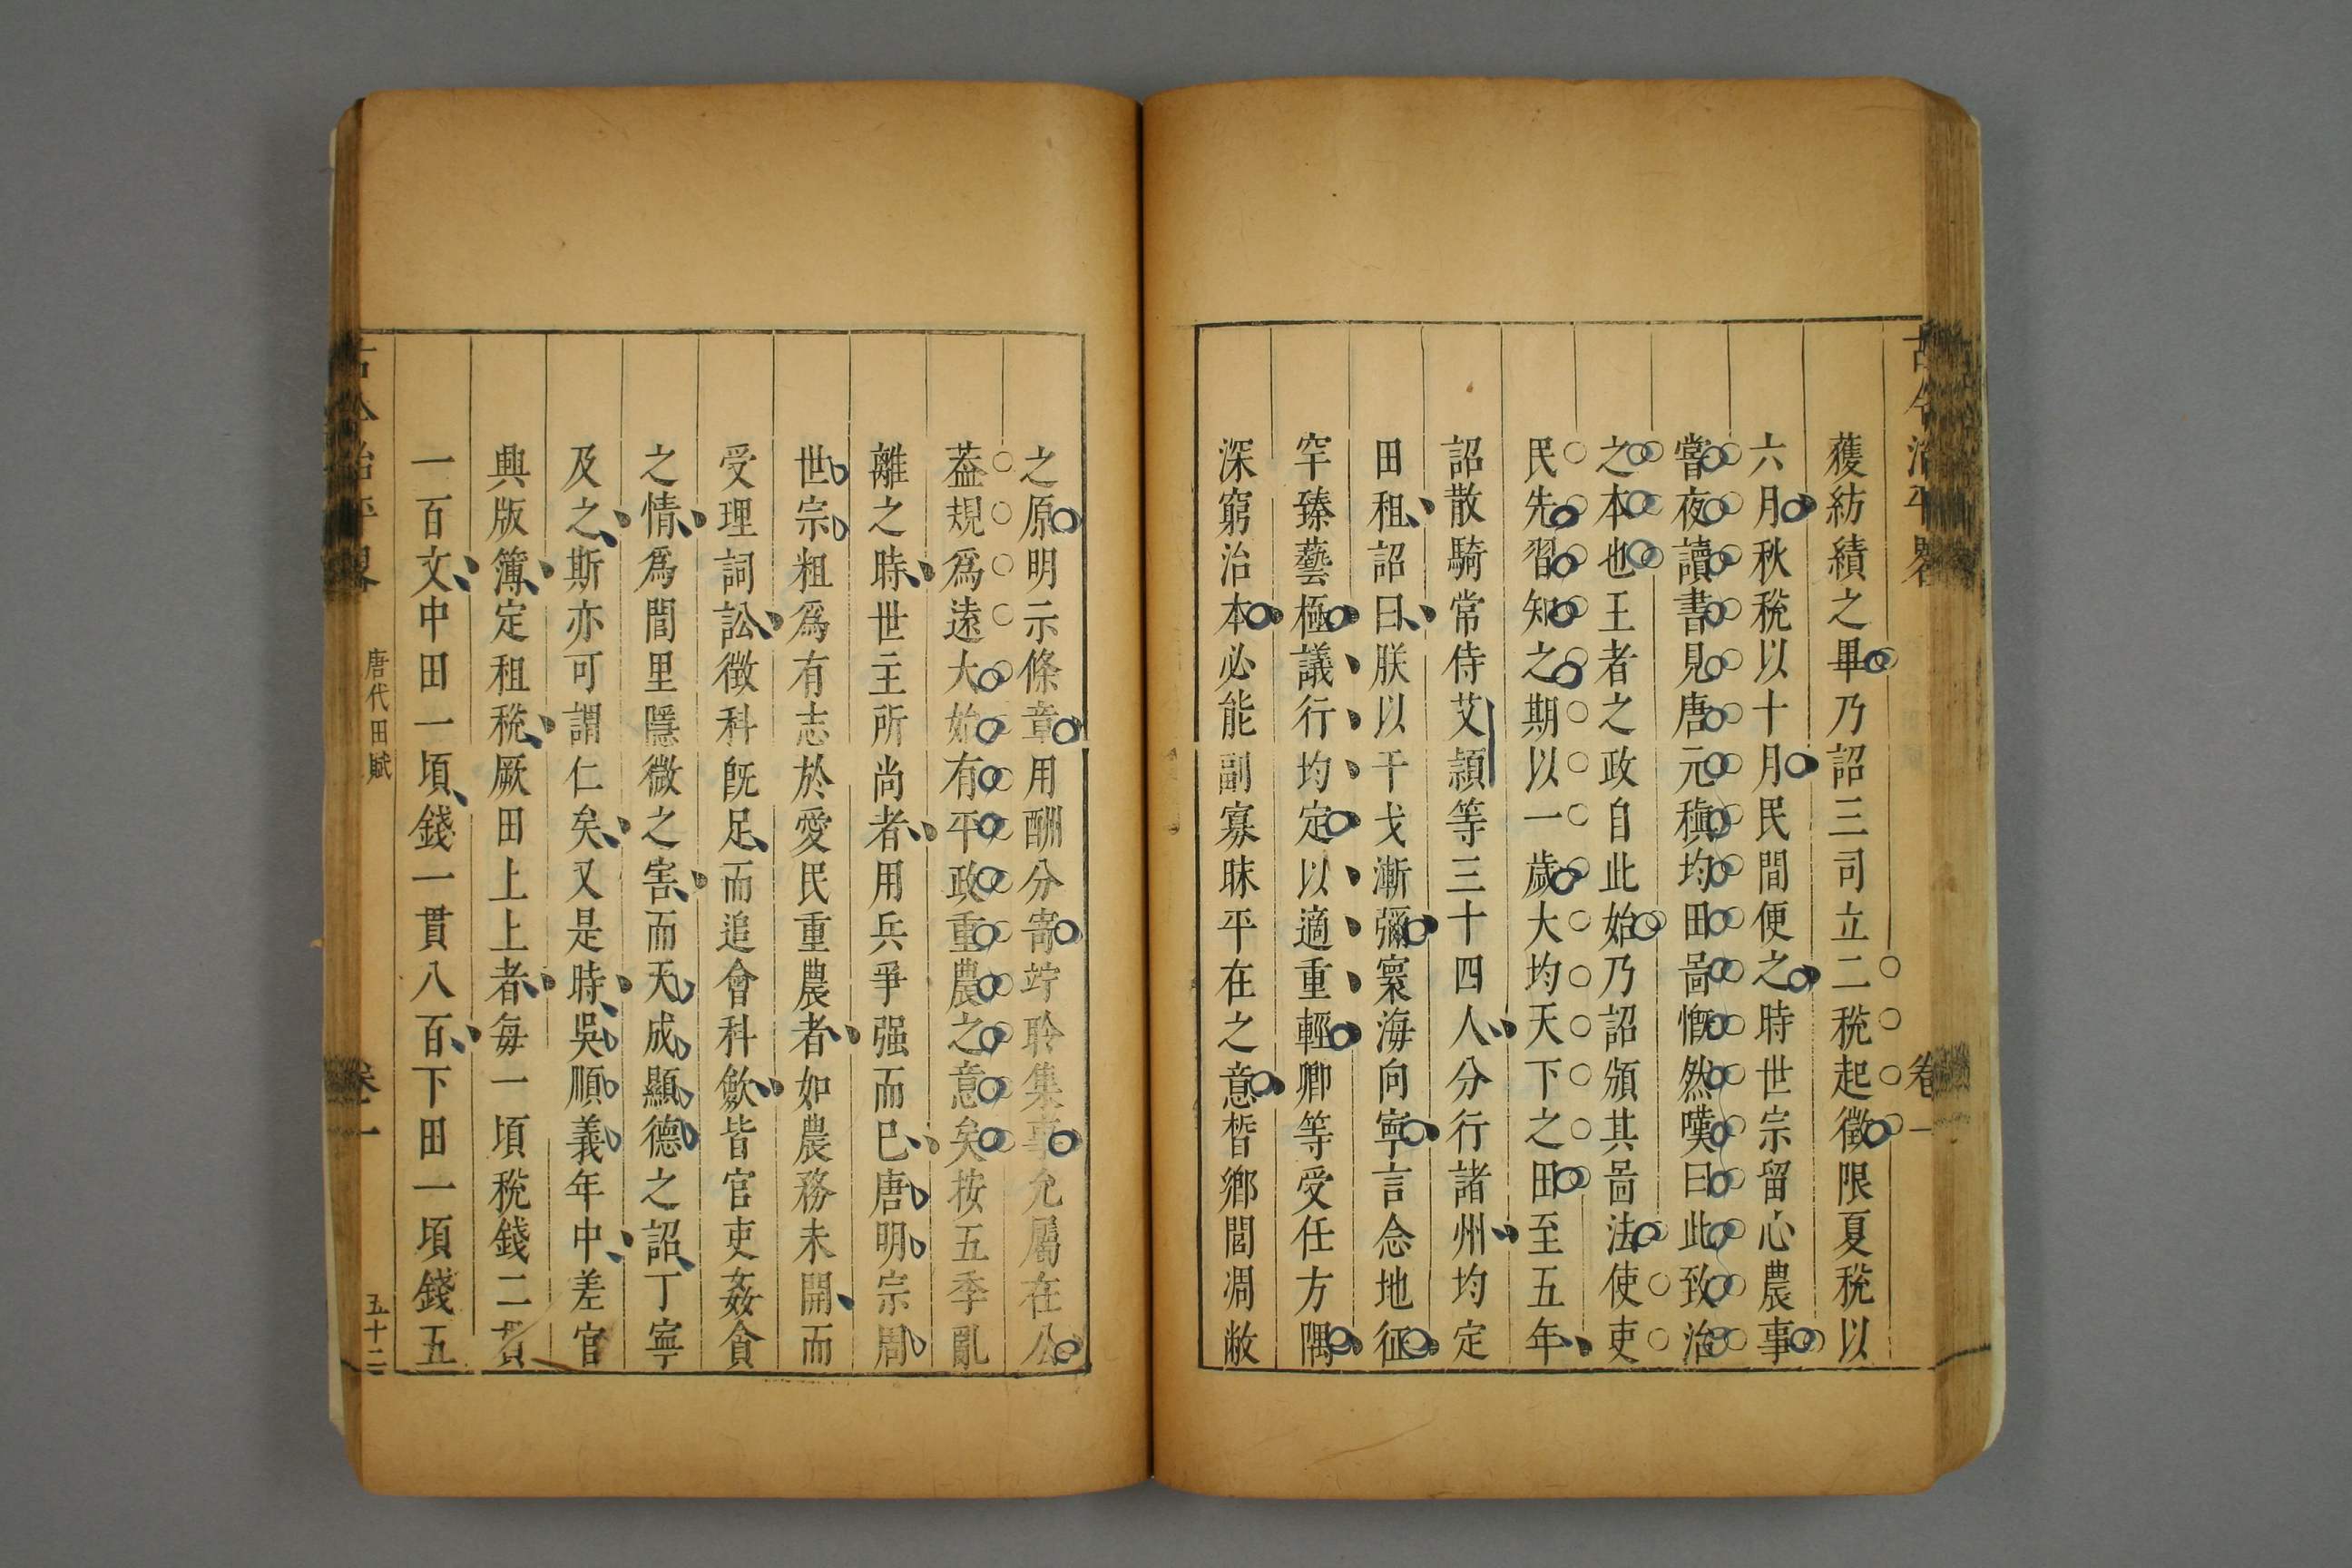 古今治平畧 卷一
穫紡績之畢乃詔三司立二稅起徵限夏稅以
六月秋稅以十月民間便之時世宗留心農事
嘗夜讀書見唐元稹均田啚慨然嘆曰此致治
之本也王者之政自此始乃詔頒其啚法使吏
民先習知之期以一歲大均天下之田至五年
詔散騎常侍艾頴等三十四人分行諸州均定
田租詔曰朕以干戈漸彌寰海向寧言念地征
罕臻藝極議行均定以適重輕卿等受任方隅
深窮治本必能副寡昧平在之意㫮鄉閭凋敝
之原明示條章用酬分寄竚聆集事允屬在公
葢規爲遠大始有平政重農之意矣按五季亂
離之時世主所尚者用兵爭强而巳唐明宗周
世宗粗爲有志於愛民重農者如農務未開而
受理詞訟徵科旣足而追會科斂皆官吏姦貪
之情爲閭里隱微之害而天成顯德之詔丁寧
及之斯亦可謂仁矣又是時吳順義年中差官
興版簿定租稅厥田上上者每一頃稅錢二貫
一百文中田一頃錢一貫八百下田一頃錢五
古今治平畧 唐代田賦 卷一 五十二